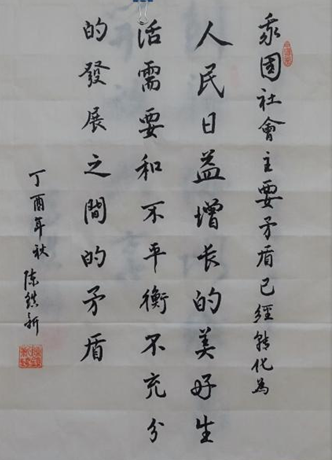 我國社會主要矛盾已經轉化為
人民日益增长的美好生
活需要和不平衡不充分
的發展之間的矛盾
丁酉年秋